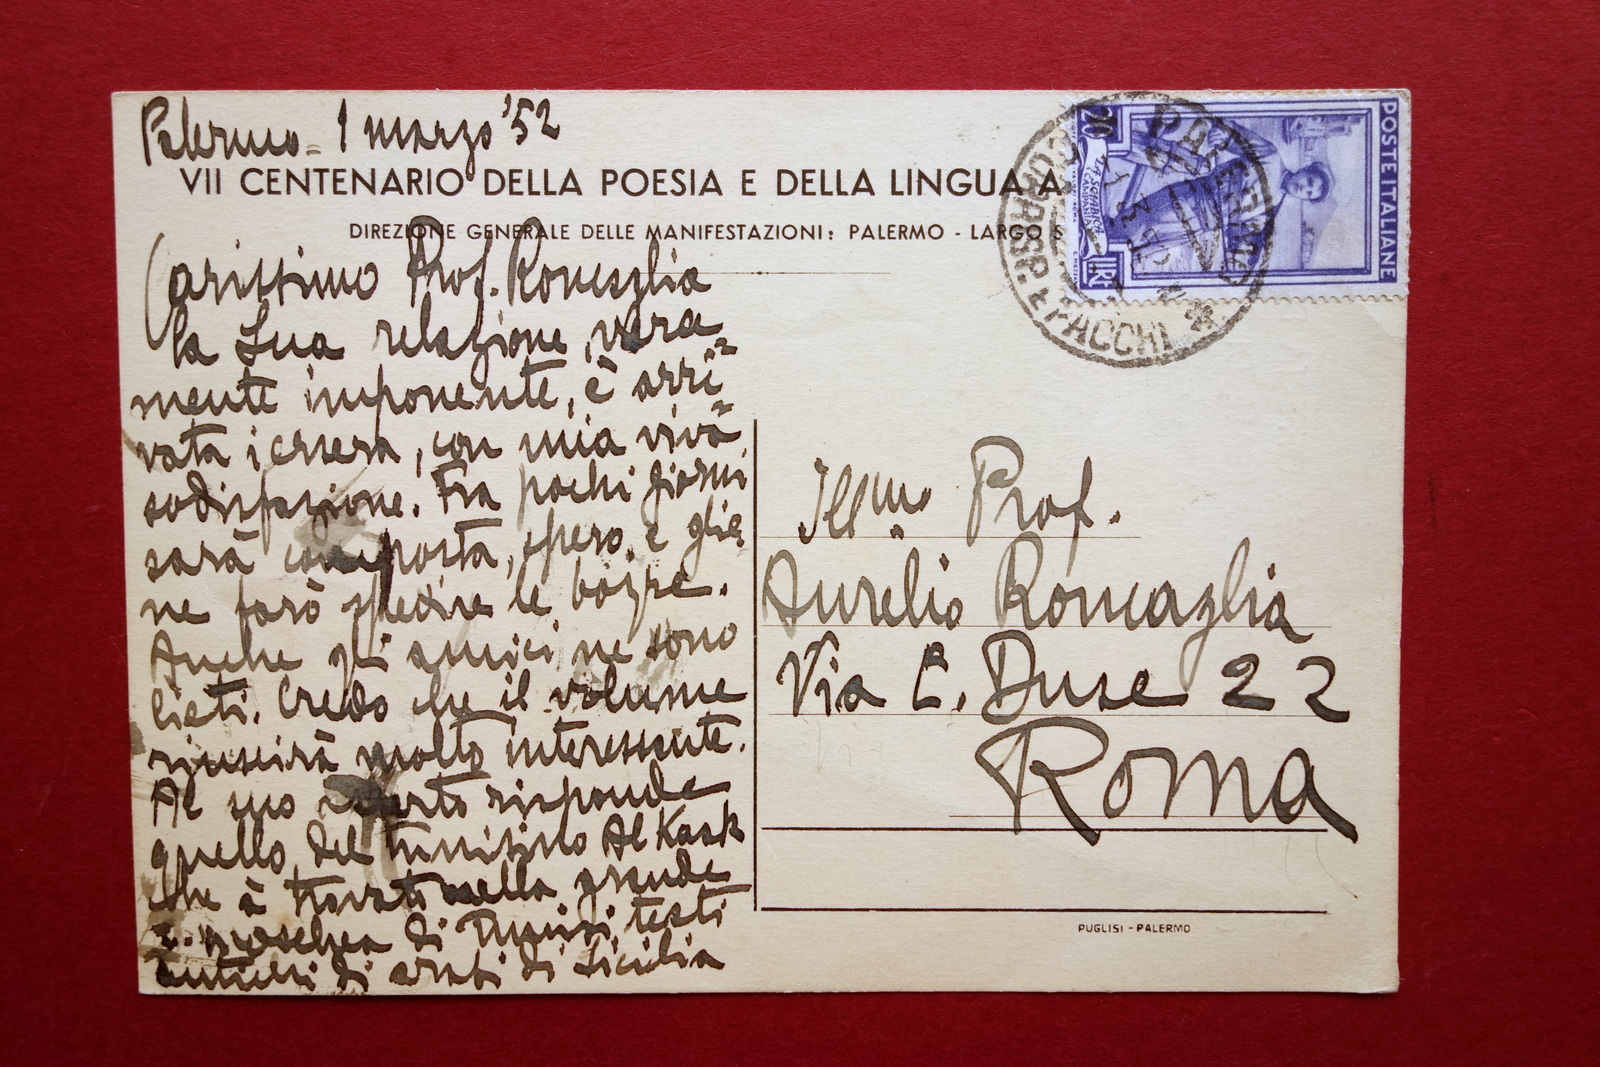 Palermo - 1 marzo '52
VII CENTENARIO DELLA POESIA E DELLA LINGUA
DIREZIONE GENERALE DELLE MANIFESTAZIONI: PALERMO - LARGO S
Carissimo Prof. Roncaglia
la Sua relazione, vera
mente imponente, è arri=
vata iersera, con mia viva
sodisfazione. Fra pochi giorni
sarà composta, spero, e glie
ne farò spedire le bozze.
Anche gli amici ne sono
lieti. Credo che il volume
riuscirà molto interessante.
Al suo risponde
quello del tunisino Al Kaak
che à trovato nella grande
moschea di Tunisi testi
antichi di arabi di Sicilia
20
LIRE
POSTE ITALIANE
LA SCIABICA
CAMPANIA
PALERMO
CORRISP. E PACCHI
Ill.mo Prof.
Aurelio Roncaglia
Via E. Duse 22
Roma
PUGLISI - PALERMO